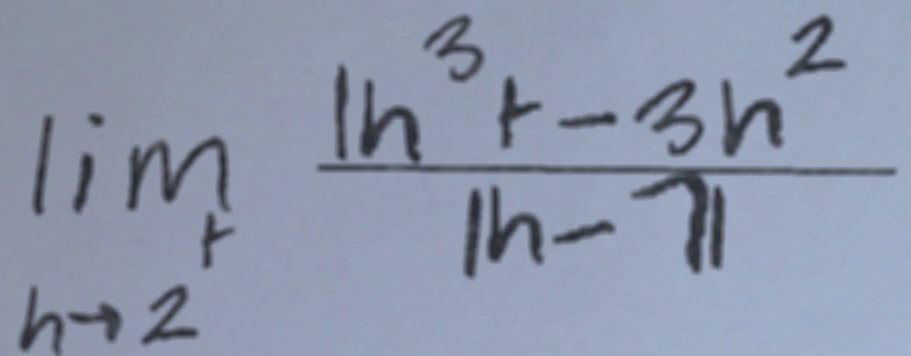 lim_{h→2^+} \frac{1h^3 + -3h^2}{|h-7|}